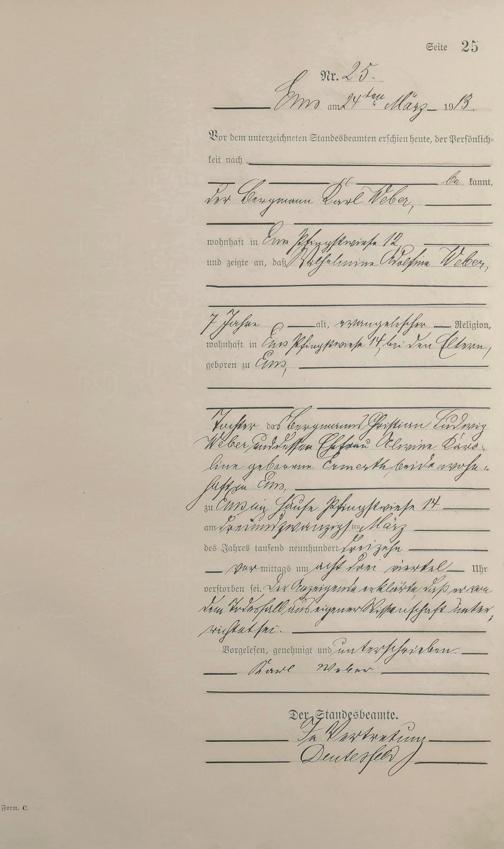 Seite 25
Nr. 25.
Ems am 24ten März 1913
Vor dem unterzeichneten Standesbeamten erschien heute, der Persönlich-
keit nach
be kannt,
der Bergmann Karl Weber,
wohnhaft in Ems Pfingstwiese 12
und zeigte an, daß Wilhelmine Weber,
7 Jahre alt, evangelischer Religion,
wohnhaft in Ems Pfingstwiese 14, bei den Eltern,
geboren zu Ems,
Tochter des Bergmanns Christian Ludwig
Weber und dessen Ehefrau Alwine Karo-
line geborene beide wohn-
haft in Ems,
zu Ems im Hause Pfingstwiese 14
am dreiundzwanzigsten März
des Jahres tausend neunhundert dreizehn
vor mittags um acht drei viertel Uhr
verstorben sei. Der Anzeigende erklärte, daß er von
dem Todesfall aus eigener Wissenschaft unter-
richtet sei.
Vorgelesen, genehmigt und unterschrieben.
Karl Weber
Der Standesbeamte.
In Vertretung
Form. C.